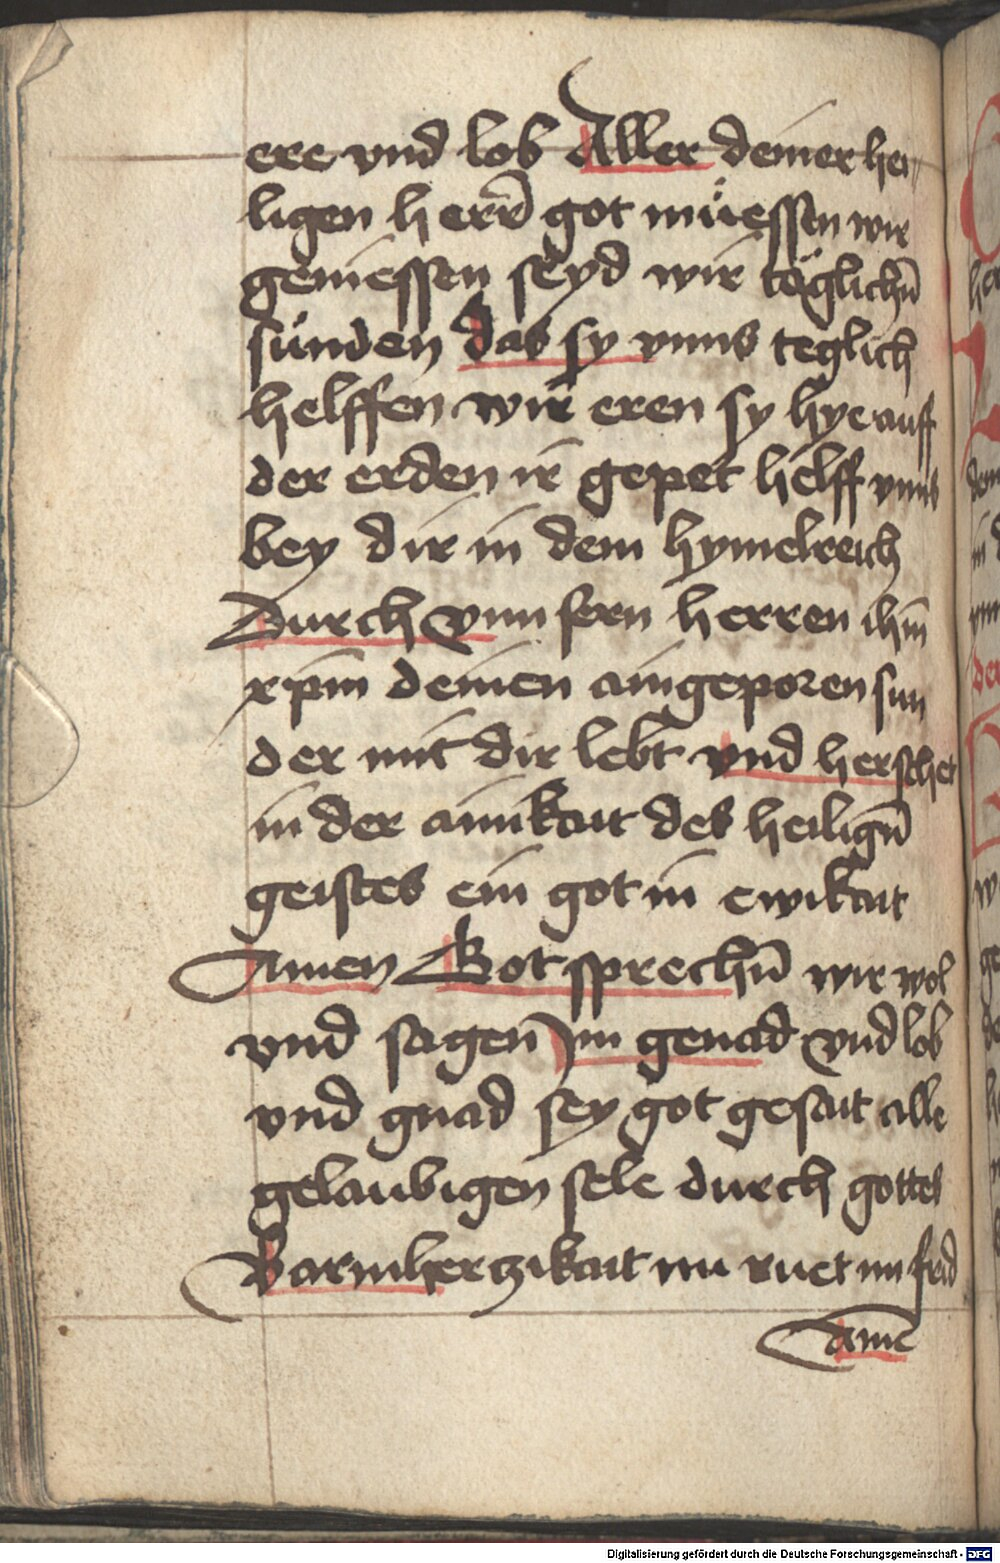 ere vnd lob Aller deiner hei
ligen herr̄ got müessen wir
geniessen seyd wir töglichn̄
sünden das sy vnns teglich
helffen wir eren sy hye auff
der erden ir gepet helff vnns
bey dir in dem hymelreich
Durch vnnsern herren ihm̄
xpm̄ deinen aingeporen sun
der mit dir lebt vnd herschet
in der ainikait des heilign̄
geistes ein got in ewikait
Amen Got sprechn̄ wir wol
vnd sagen im genad vnd lob
vnd gnad sey got gesait alle
gelaubigen sele durch gottes
Barmherczikait nu ruet im frid
Amē
Digitalisierung gefördert durch die Deutsche Forschungsgemeinschaft - DFG